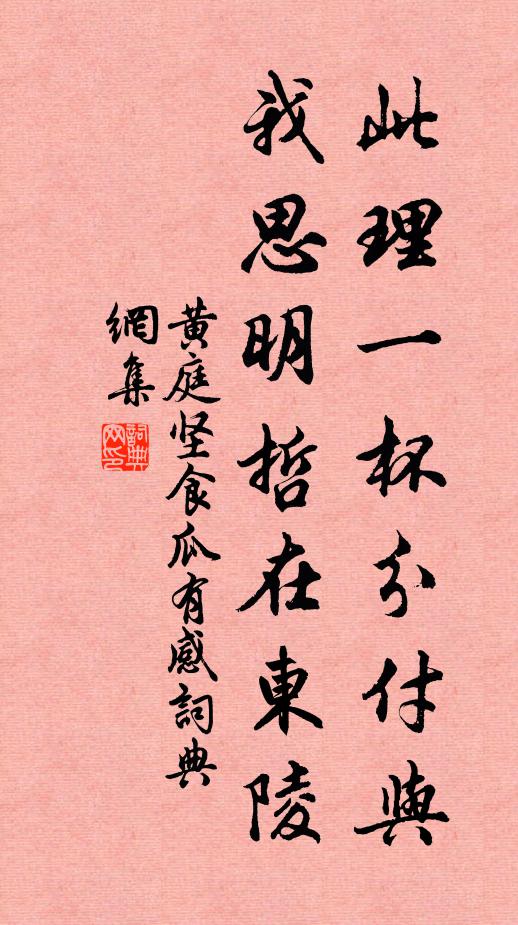 此理一杯分付與
我思明哲在東陵
黄庭坚食瓜有感詞典
網集
詞典
网印